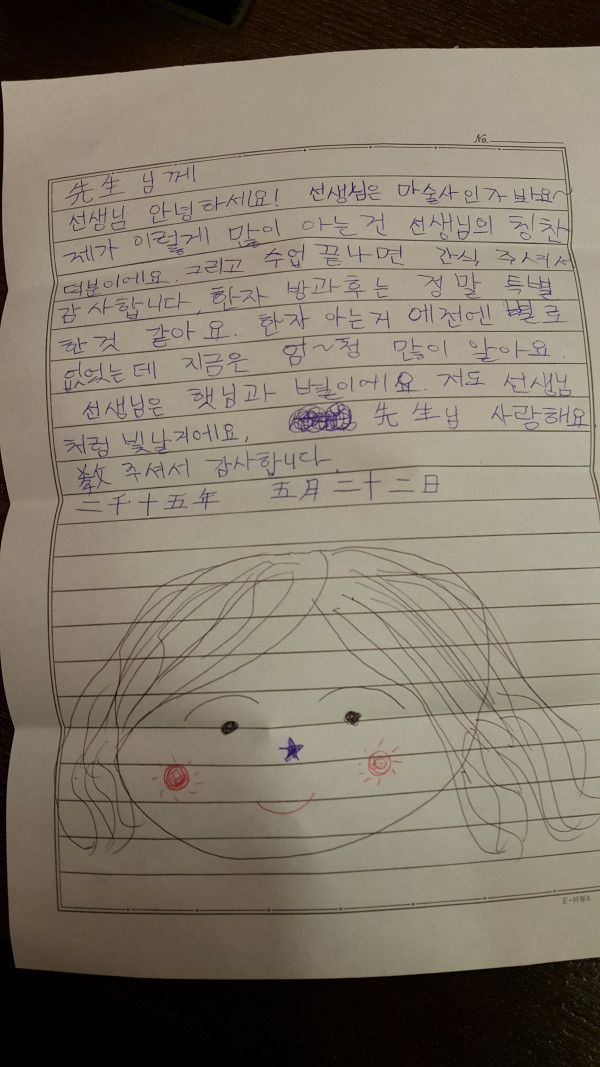 No.
先生님께
선생님 안녕하세요! 선생님은 마술사인가 봐요~
제가 이렇게 많이 아는건 선생님의 칭찬
덕분이에요. 그리고 수업 끝나면 간식 주셔서
감사합니다. 한자 방과후는 정말 특별
한것 같아요. 한자 아는거 예전엔 별로
없었는데 지금은 엄~청 많이 알아요.
선생님은 햇님과 별이에요. 저도 선생님
처럼 빛날거에요. 先生님 사랑해요
敎 주셔서 감사합니다.
二千十五年 五月二十二日
E-HWA